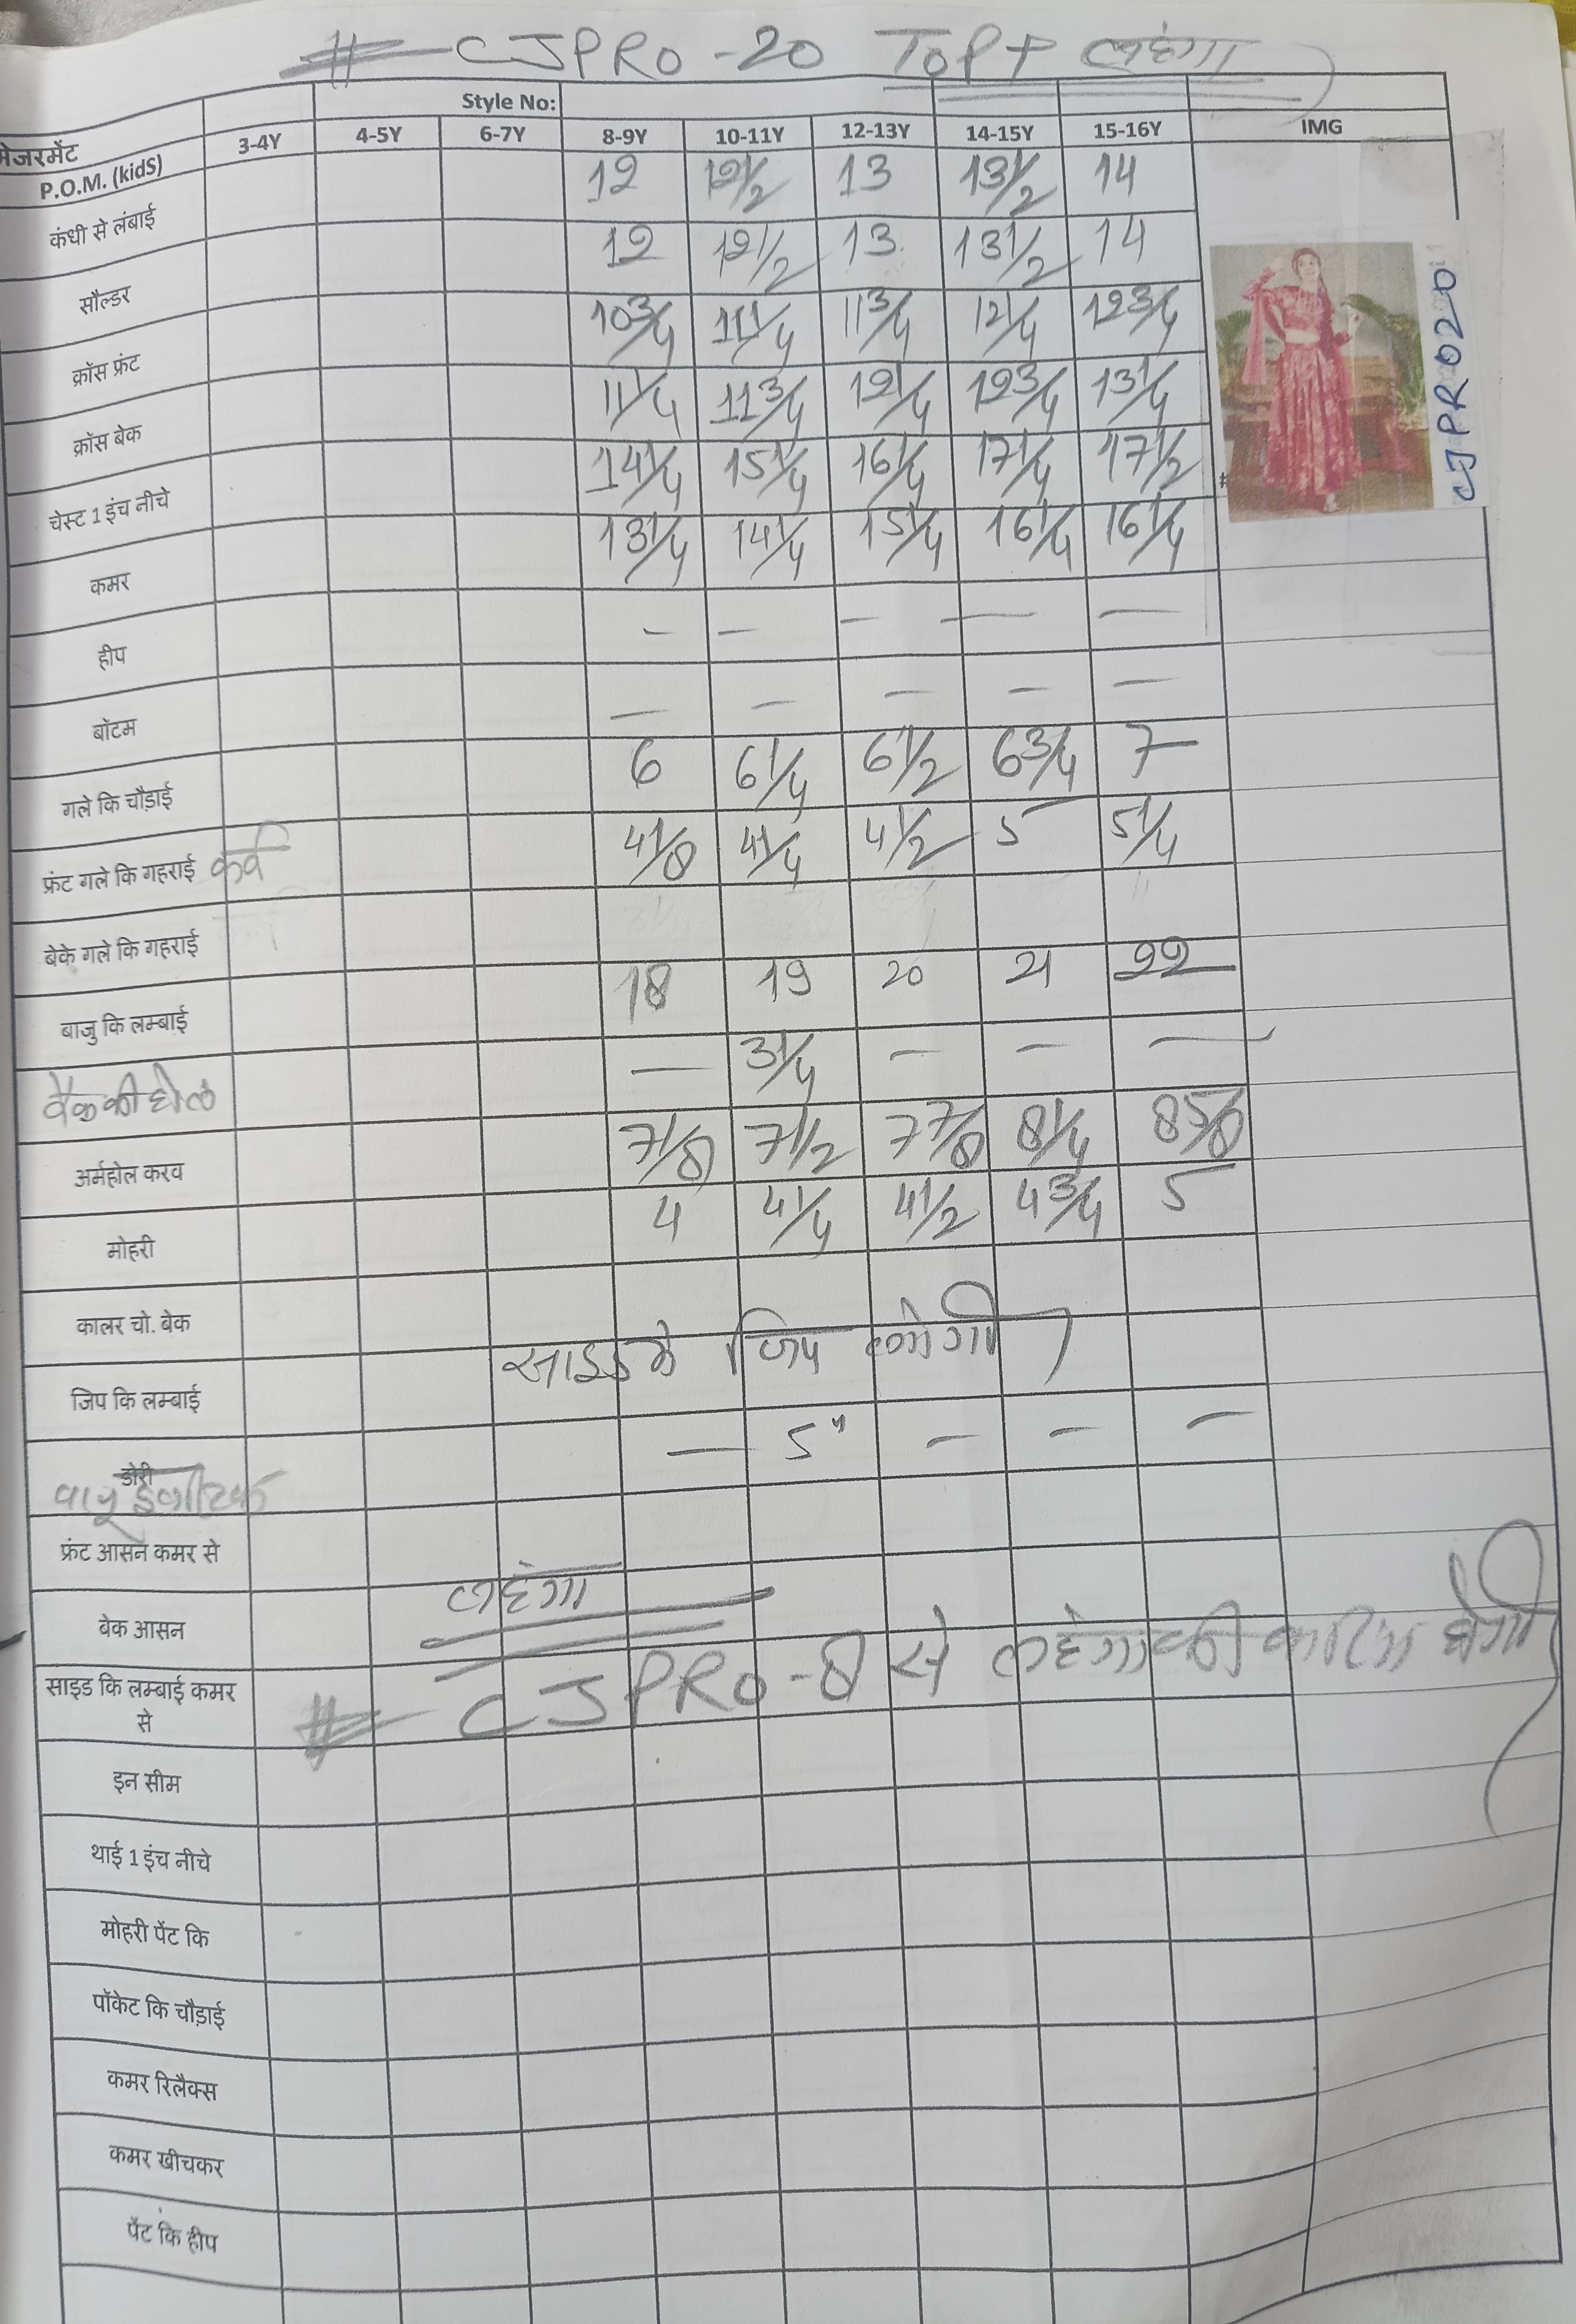 # CJPRO-20 TOP + लहंगा
Style No:
मेजरमेंट 3-4Y 4-5Y 6-7Y 8-9Y 10-11Y 12-13Y 14-15Y 15-16Y IMG
P.O.M. (kidS)
कंधी से लंबाई 12 12 1/2 13 13 1/2 14
सौल्डर 12 12 1/2 13 13 1/2 14
क्रॉस फ्रंट 10 3/4 11 1/4 11 3/4 12 1/4 12 3/4
क्रॉस बेक 11 1/4 11 3/4 12 1/4 12 3/4 13 1/4
चेस्ट 1 इंच नीचे 14 1/4 15 1/4 16 1/4 17 1/4 17 1/2
कमर 13 1/4 14 1/4 15 1/4 16 1/4 16 1/4
CJPRO20
हीप - - - - -
बॉटम - - - - -
गले कि चौड़ाई 6 6 1/4 6 1/2 6 3/4 7
फ्रंट गले कि गहराई कर्व 4 1/8 4 1/4 4 1/2 5 5 1/4
बेके गले कि गहराई
बाजु कि लम्बाई 18 19 20 21 22
बैक की होल - 3 1/4 - - -
अर्महोल करव 7 1/8 7 1/2 7 7/8 8 1/4 8 5/8
मोहरी 4 4 1/4 4 1/2 4 3/4 5
कालर चो. बेक
साइड मे जिप लगेगी
जिप कि लम्बाई
डोरी - 5" - - -
फ्रंट आसन कमर से
लहंगा
बेक आसन
# CJPRO-8 से लहंगा की कटिंग होगी
साइड कि लम्बाई कमर
से
इन सीम
थाई 1 इंच नीचे
मोहरी पेंट कि
पॉकेट कि चौड़ाई
कमर रिलैक्स
कमर खीचकर
पेंट कि हीप